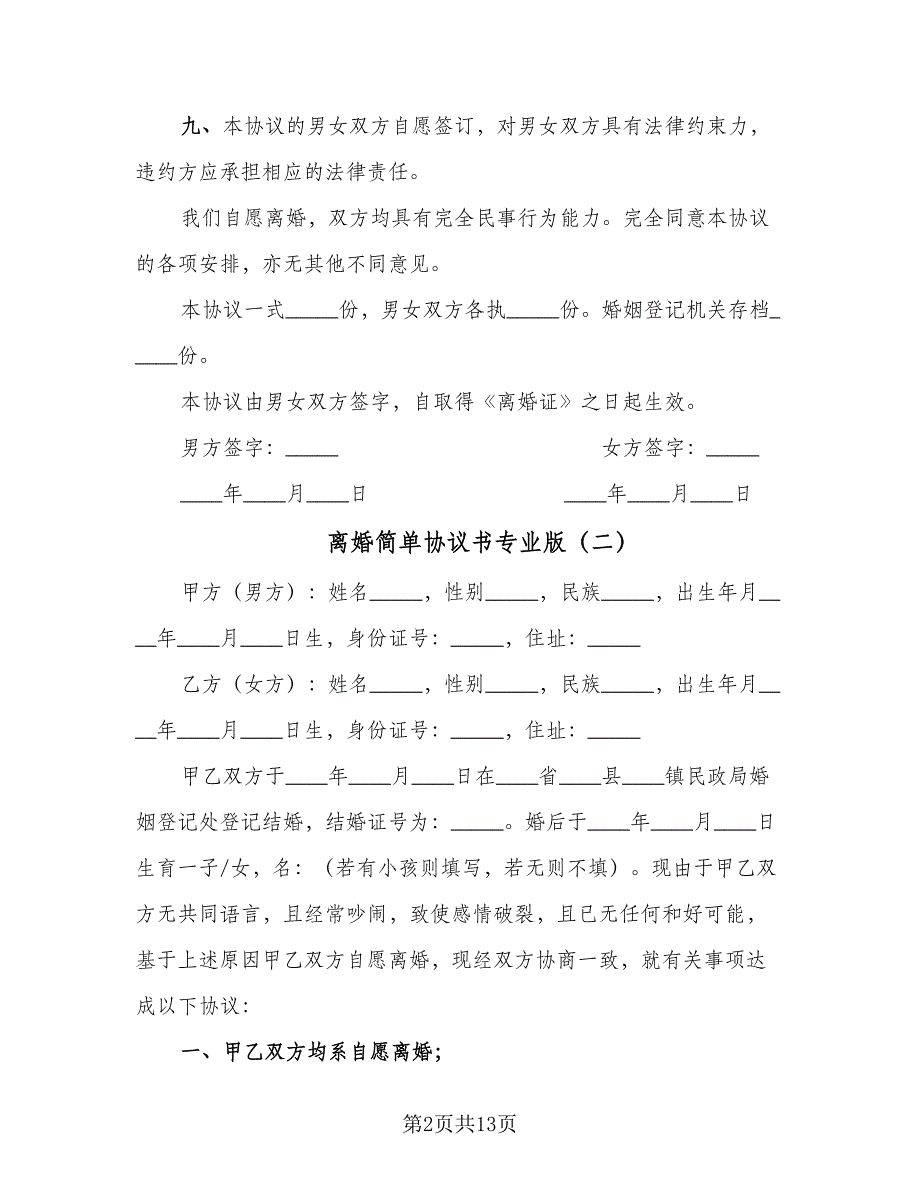 九、本协议的男女双方自愿签订，对男女双方具有法律约束力，
违约方应承担相应的法律责任。
我们自愿离婚，双方均具有完全民事行为能力。完全同意本协议
的各项安排，亦无其他不同意见。
本协议一式_____份，男女双方各执_____份。婚姻登记机关存档_
____份。
本协议由男女双方签字，自取得《离婚证》之日起生效。
男方签字：_____ 女方签字：_____
____年____月____日 ____年____月____日
离婚简单协议书专业版（二）
甲方（男方）：姓名_____，性别_____，民族_____，出生年月__
__年____月____日生，身份证号：_____，住址：_____
乙方（女方）：姓名_____，性别_____，民族_____，出生年月__
__年____月____日生，身份证号：_____，住址：_____
甲乙双方于____年____月____日在____省____县____镇民政局婚
姻登记处登记结婚，结婚证号为：_____。婚后于____年____月____日
生育一子/女，名：（若有小孩则填写，若无则不填）。现由于甲乙双
方无共同语言，且经常吵闹，致使感情破裂，且已无任何和好可能，
基于上述原因甲乙双方自愿离婚，现经双方协商一致，就有关事项达
成以下协议：
一、甲乙双方均系自愿离婚；
第2页共13页